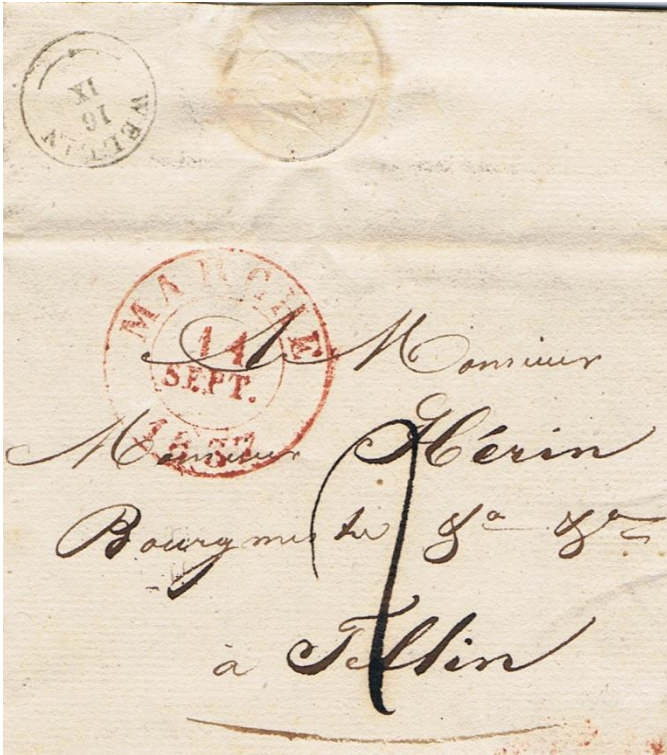 WELLIN
16
IX
MARCHE
14
SEPT.
1837
A Monsieur
Monsieur Hérin
Bourgmestre &a &a
à Tellin